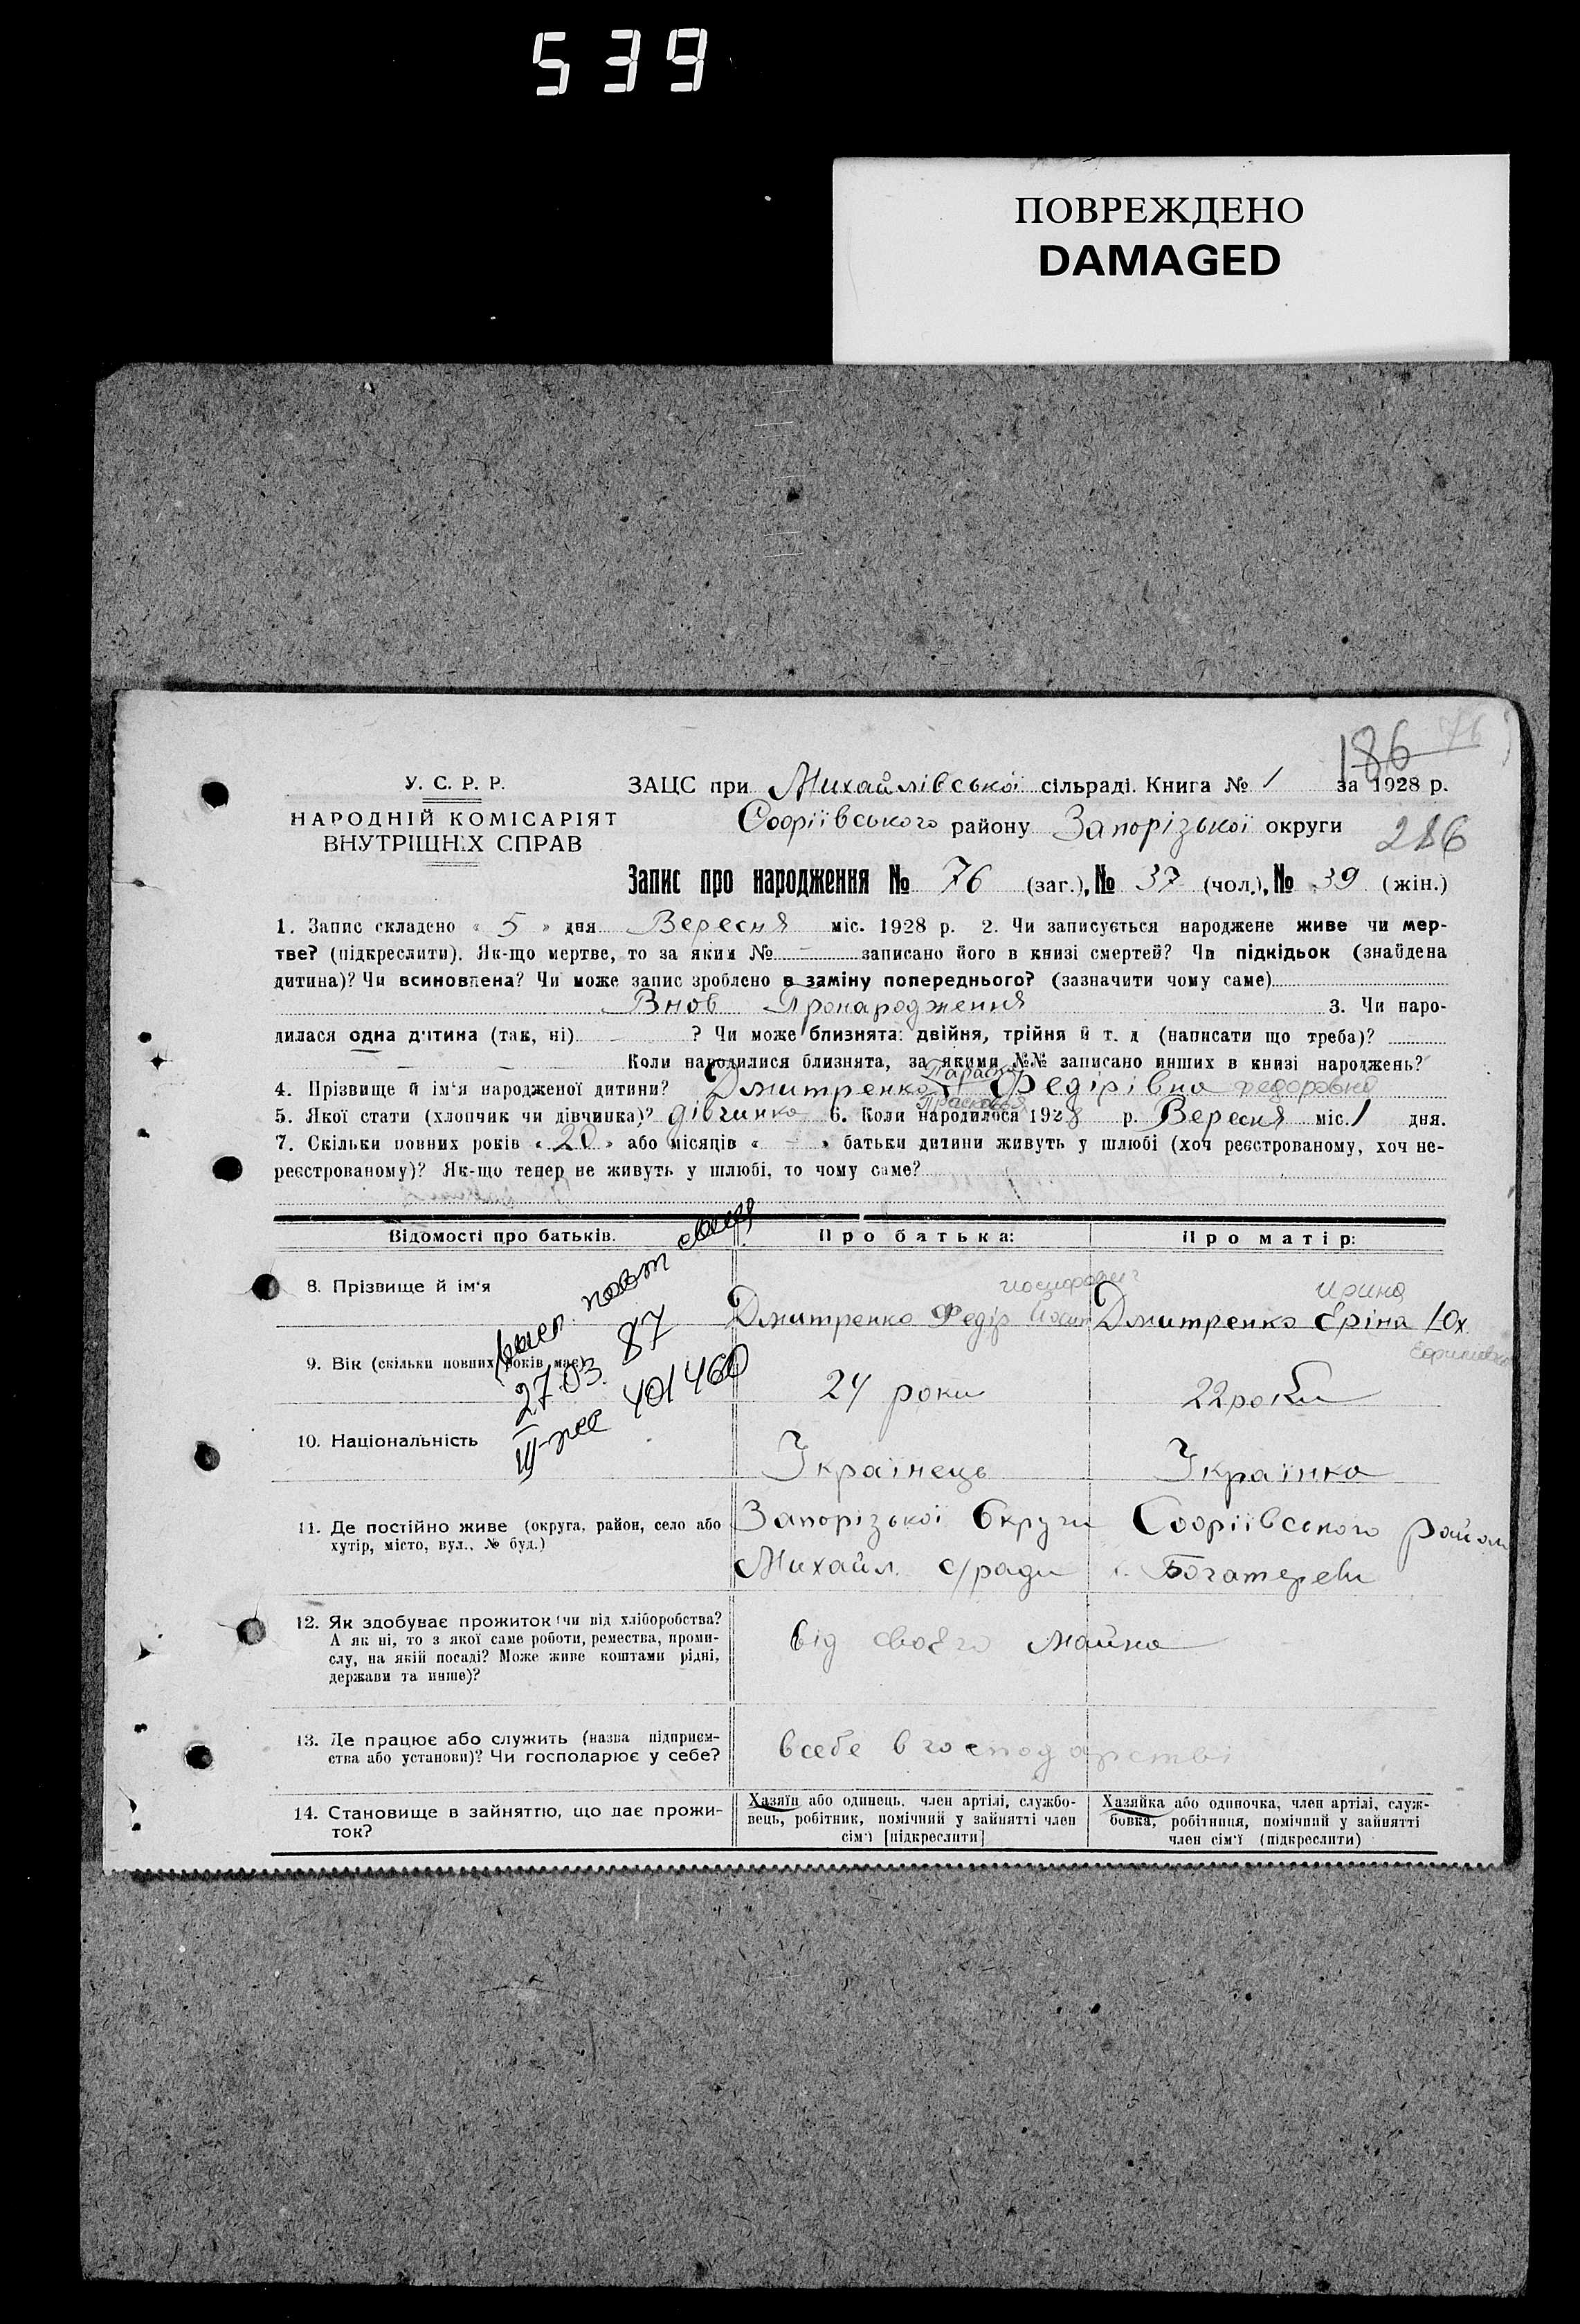 539
ПОВРЕЖДЕНО
DAMAGED
76
186
У. С. Р. Р.
НАРОДНІЙ КОМІСАРІЯТ
ВНУТРІШНІХ СПРАВ
ЗАЦС при Михайлівської сільраді. Книга № 1 за 1928 р.
Софіївського району Запорізької округи
286
Запис про народження № 76 (заг.), № 37 (чол.), № 39 (жін.)
1. Запис складено « 5 » дня Вересня міс. 1928 р. 2. Чи записується народжене живе чи мер-
тве? (підкреслити). Як-що мертве, то за яким № — записано його в книзі смертей? Чи підкідьок (знайдена
дитина)? Чи всиновлена? Чи може запис зроблено в заміну попереднього? (зазначити чому саме)
Внов Пронародження 3. Чи наро-
дилася одна дитина (так, ні) ? Чи може близнята: двійня, трійня й т. д (написати що треба)?
Коли народилися близнята, за якими №№ записано инших в книзі народжень?
Параска
4. Прізвище й ім'я народженої дитини? Дмитренко Федірівна федоровна
Прасковья
5. Якої стати (хлопчик чи дівчинка)? дівчинка 6. Коли народилося 1928 р. Вересня міс. 1 дня.
7. Скільки повних років « 20 » або місяців « — » батьки дитини живуть у шлюбі (хоч реєстрованому, хоч не-
реєстрованому)? Як-що тепер не живуть у шлюбі, то чому саме?
Відомості про батьків.
Про батька:
Про матір:
8. Прізвище й ім'я
Дмитренко Федір
Ирина
Дмитренко Еріна Юх.
повт
27.03. 87
401460
9. Вік (скільки повних років має)
24 роки
22 роки
10. Національність
Українець
Українка
11. Де постійно живе (округа, район, село або
хутір, місто, вул., № буд.)
Запорізької Округи Софіївського Район
Михайл. с/ради с. Богатереви
12. Як здобуває прожиток (чи від хліборобства?
А як ні, то з якої саме роботи, ремества, проми-
слу, на якій посаді? Може живе коштами рідні,
держави та инше)?
від своєго майна
13. Де працює або служить (назва підприєм-
ства або установи)? Чи господарює у себе?
всебе в господарстві
14. Становище в зайняттю, що дає прожи-
ток?
Хазяїн або одинець, член артілі, службо-
вець, робітник, помічний у зайнятті член
сім'ї [підкреслити]
Хазяйка або одиночка, член артілі, служ-
бовка, робітниця, помічний у зайнятті
член сім'ї (підкреслити)